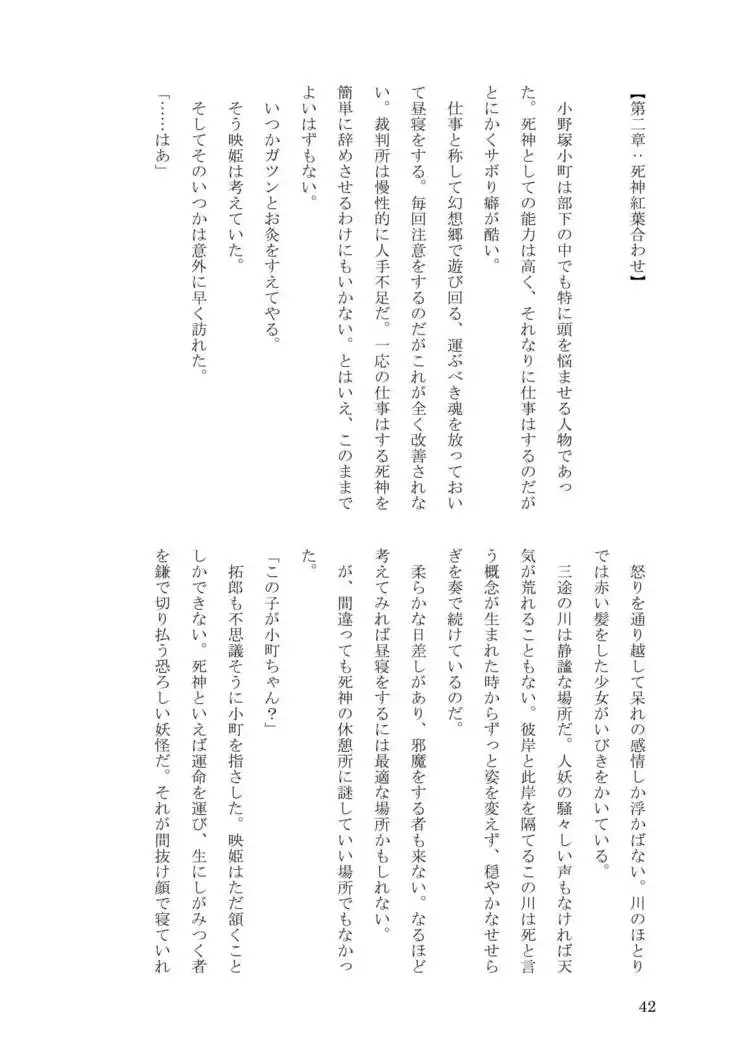 【第二章：死神紅葉合わせ】
　小野塚小町は部下の中でも特に頭を悩ませる人物であっ
た。死神としての能力は高く、それなりに仕事はするのだが
とにかくサボり癖が酷い。
　仕事と称して幻想郷で遊び回る、運ぶべき魂を放っておい
て昼寝をする。毎回注意をするのだがこれが全く改善されな
い。裁判所は慢性的に人手不足だ。一応の仕事はする死神を
簡単に辞めさせるわけにもいかない。とはいえ、このままで
よいはずもない。
　いつかガツンとお灸をすえてやる。
　そう映姫は考えていた。
　そしてそのいつかは意外に早く訪れた。
「……はあ」
　怒りを通り越して呆れの感情しか浮かばない。川のほとり
では赤い髪をした少女がいびきをかいている。
　三途の川は静謐な場所だ。人妖の騒々しい声もなければ天
気が荒れることもない。彼岸と此岸を隔てるこの川は死と言
う概念が生まれた時からずっと姿を変えず、穏やかなせせら
ぎを奏で続けているのだ。
　柔らかな日差しがあり、邪魔をする者も来ない。なるほど
考えてみれば昼寝をするには最適な場所かもしれない。
　が、間違っても死神の休憩所に謎していい場所でもなかっ
た。
「この子が小町ちゃん？」
　拓郎も不思議そうに小町を指さした。映姫はただ頷くこと
しかできない。死神といえば運命を運び、生にしがみつく者
を鎌で切り払う恐ろしい妖怪だ。それが間抜け顔で寝ていれ
42